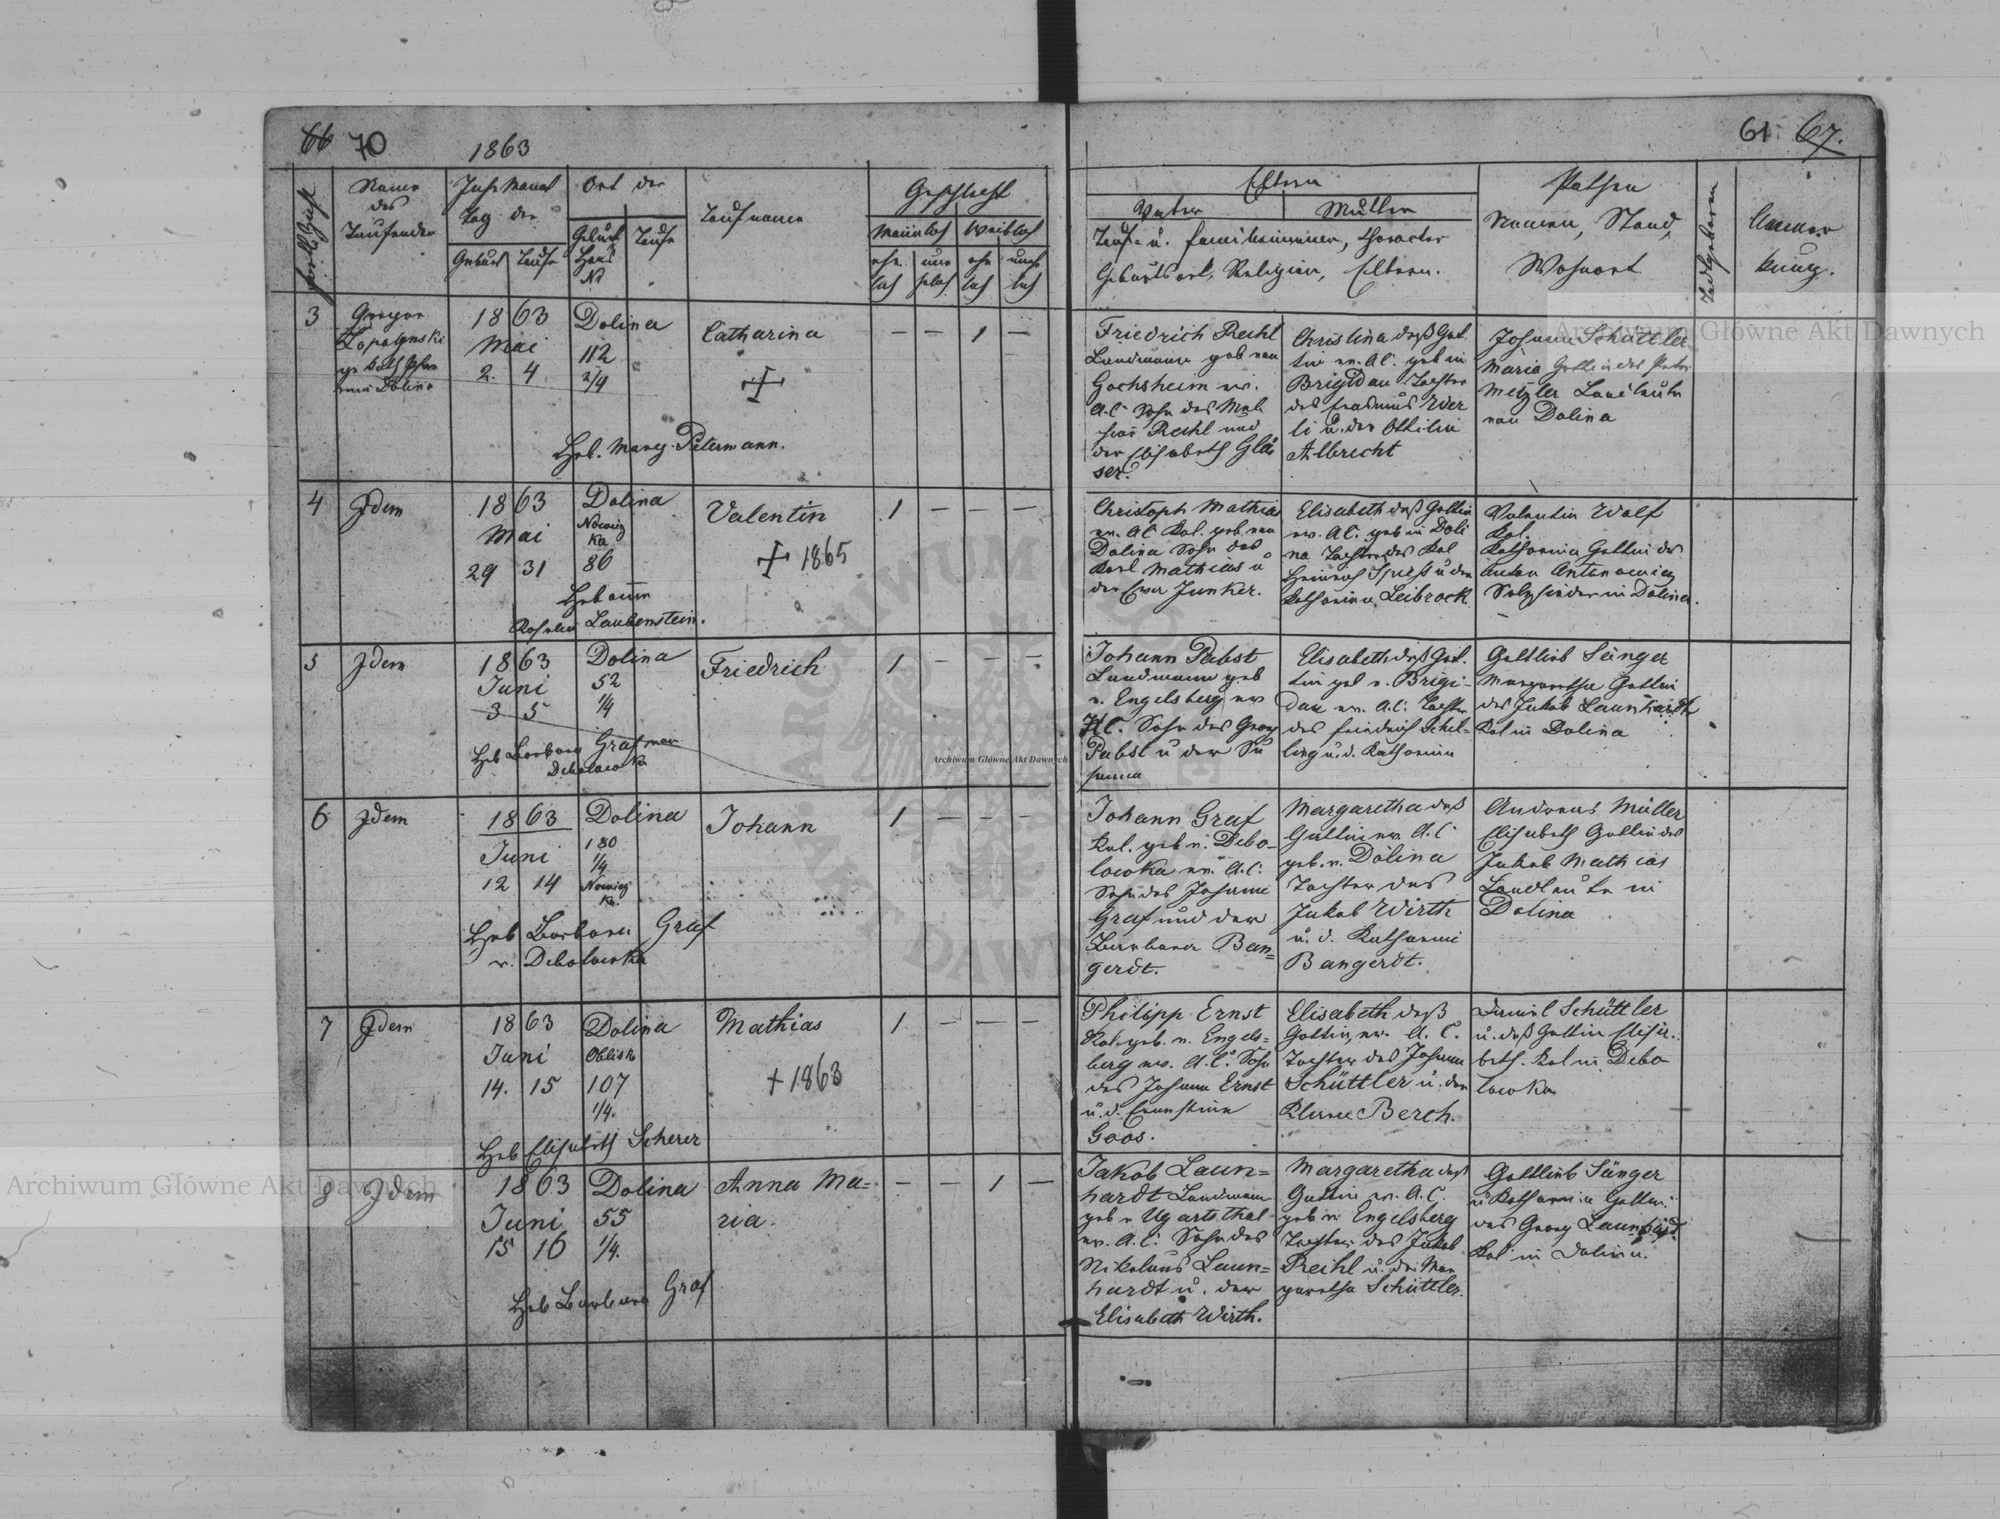 66 70 1863
61. 67.
Name des Taufenden
Jahr Monat Tag der
Geburt Taufe
Ort der
Geburt Haus N
Taufe
Taufname
Geschlecht
Männlich Weiblich
Eltern
Vater Mutter
Tauf- u. Familiennamen, Character
Geburtsort, Religion, Eltern.
Pathen
Namen, Stand,
Wohnort
Anmer
kung.
3
Dolina
1863
Mai
2. 4.
Dolina
112
2/4
Catharina
Heb. Petermann.
— — 1 —
Friedrich Reihl
Landmann geb von
Gochsheim ev.
A.C. Sohn des
Reihl und
der Elisabeth Glä
ser.
Christina deß Gat
tin ev. A.C. geb in
Brigidau Tochter
des Erasmus
u. der Ottilia
Albrecht
Johann Schüttler
Maria Gattin des Peter
Metzler Landleute
von Dolina
4 Idem
1863
Mai
29 31
Dolina
Nowicz
ka
86
Valentin
1865
Hebamme
Laubenstein.
1 — — —
Christoph Mathias
ev. AC Kol. geb von
Dolina Sohn des
Karl Mathias u
der Eva Junker.
Elisabeth deß Gattin
ev. A.C. geb in Doli
na Tochter des Kol
Heinrich u der
Katharina Leibrock.
Valentin Wolf
Kol.
Katharina Gattin des
Anton Antonowicz
in Dolina.
5 Idem
1863
Juni
3 5
Dolina
52
1/4
Friedrich
Heb Barbara Graf von
Debolowka
1 — — —
Johann Pabst
Landmann geb
v. Engelsberg ev
H.C. Sohn des Georg
Pabst u der Su
sanna
Elisabeth deß Gat.
tin geb v. Brigi-
dau ev. A.C. Tochter
des Friedrich Schil-
ling u. d. Katharina
Gottlieb Sänger
Margaretha Gattin
des Jakob Launhardt
Kol in Dolina
6 Idem
1863
Juni
12 14
Dolina
180
1/4
Nowicz
ka
Johann
Heb Barbara Graf
v. Debolowka
1 — — —
Johann Graf
Kol. geb v. Debo-
lowka ev. A.C.
Sohn des Johann
Graf und der
Barbara Ban=
gerdt.
Margaretha deß
Gattin ev. A.C
geb. v. Dolina
Tochter des
Jakob Wirth
u. d. Katharina
Bangerdt.
Andreas Müller
Elisabeth Gattin des
Jakob Mathias
Landleute in
Dolina
7 Idem
1863
Juni
14. 15
Dolina
Oblisk
107
1/4.
Mathias
+ 1863
Heb Elisabeth Scherer
1 — — —
Philipp Ernst
Kol. geb. v. Engels=
berg ev. A.C. Sohn
des Johann Ernst
u. d. Ernstine
Goos.
Elisabeth deß
Gattin, ev. A. C.
Tochter des Johann
Schüttler u. der
Berch.
Daniel Schüttler
u. deß Gattin Elisa-
beth. Kol in Debo-
lowka
8 Idem
1863
Juni
15 16
Dolina
55
1/4.
Anna Ma=
ria.
Heb Barbara Graf
— — 1 —
Jakob Laun=
hardt Landmann
geb v Ugartsthal
ev. A.C. Sohn des
Nikolaus Laun=
hardt u. der
Elisabeth Wirth.
Margaretha deß
Gattin ev. A.C.
geb v. Engelsberg
Tochter des Jakob
Reihl u. der Mar
garetha Schüttler.
Gottlieb Sänger
u Katharina Gattin
des Georg Launhardt
Kol in Dolina.
Archiwum Główne Akt Dawnych
Archiwum Główne Akt Dawnych
Archiwum Główne Akt Dawnych